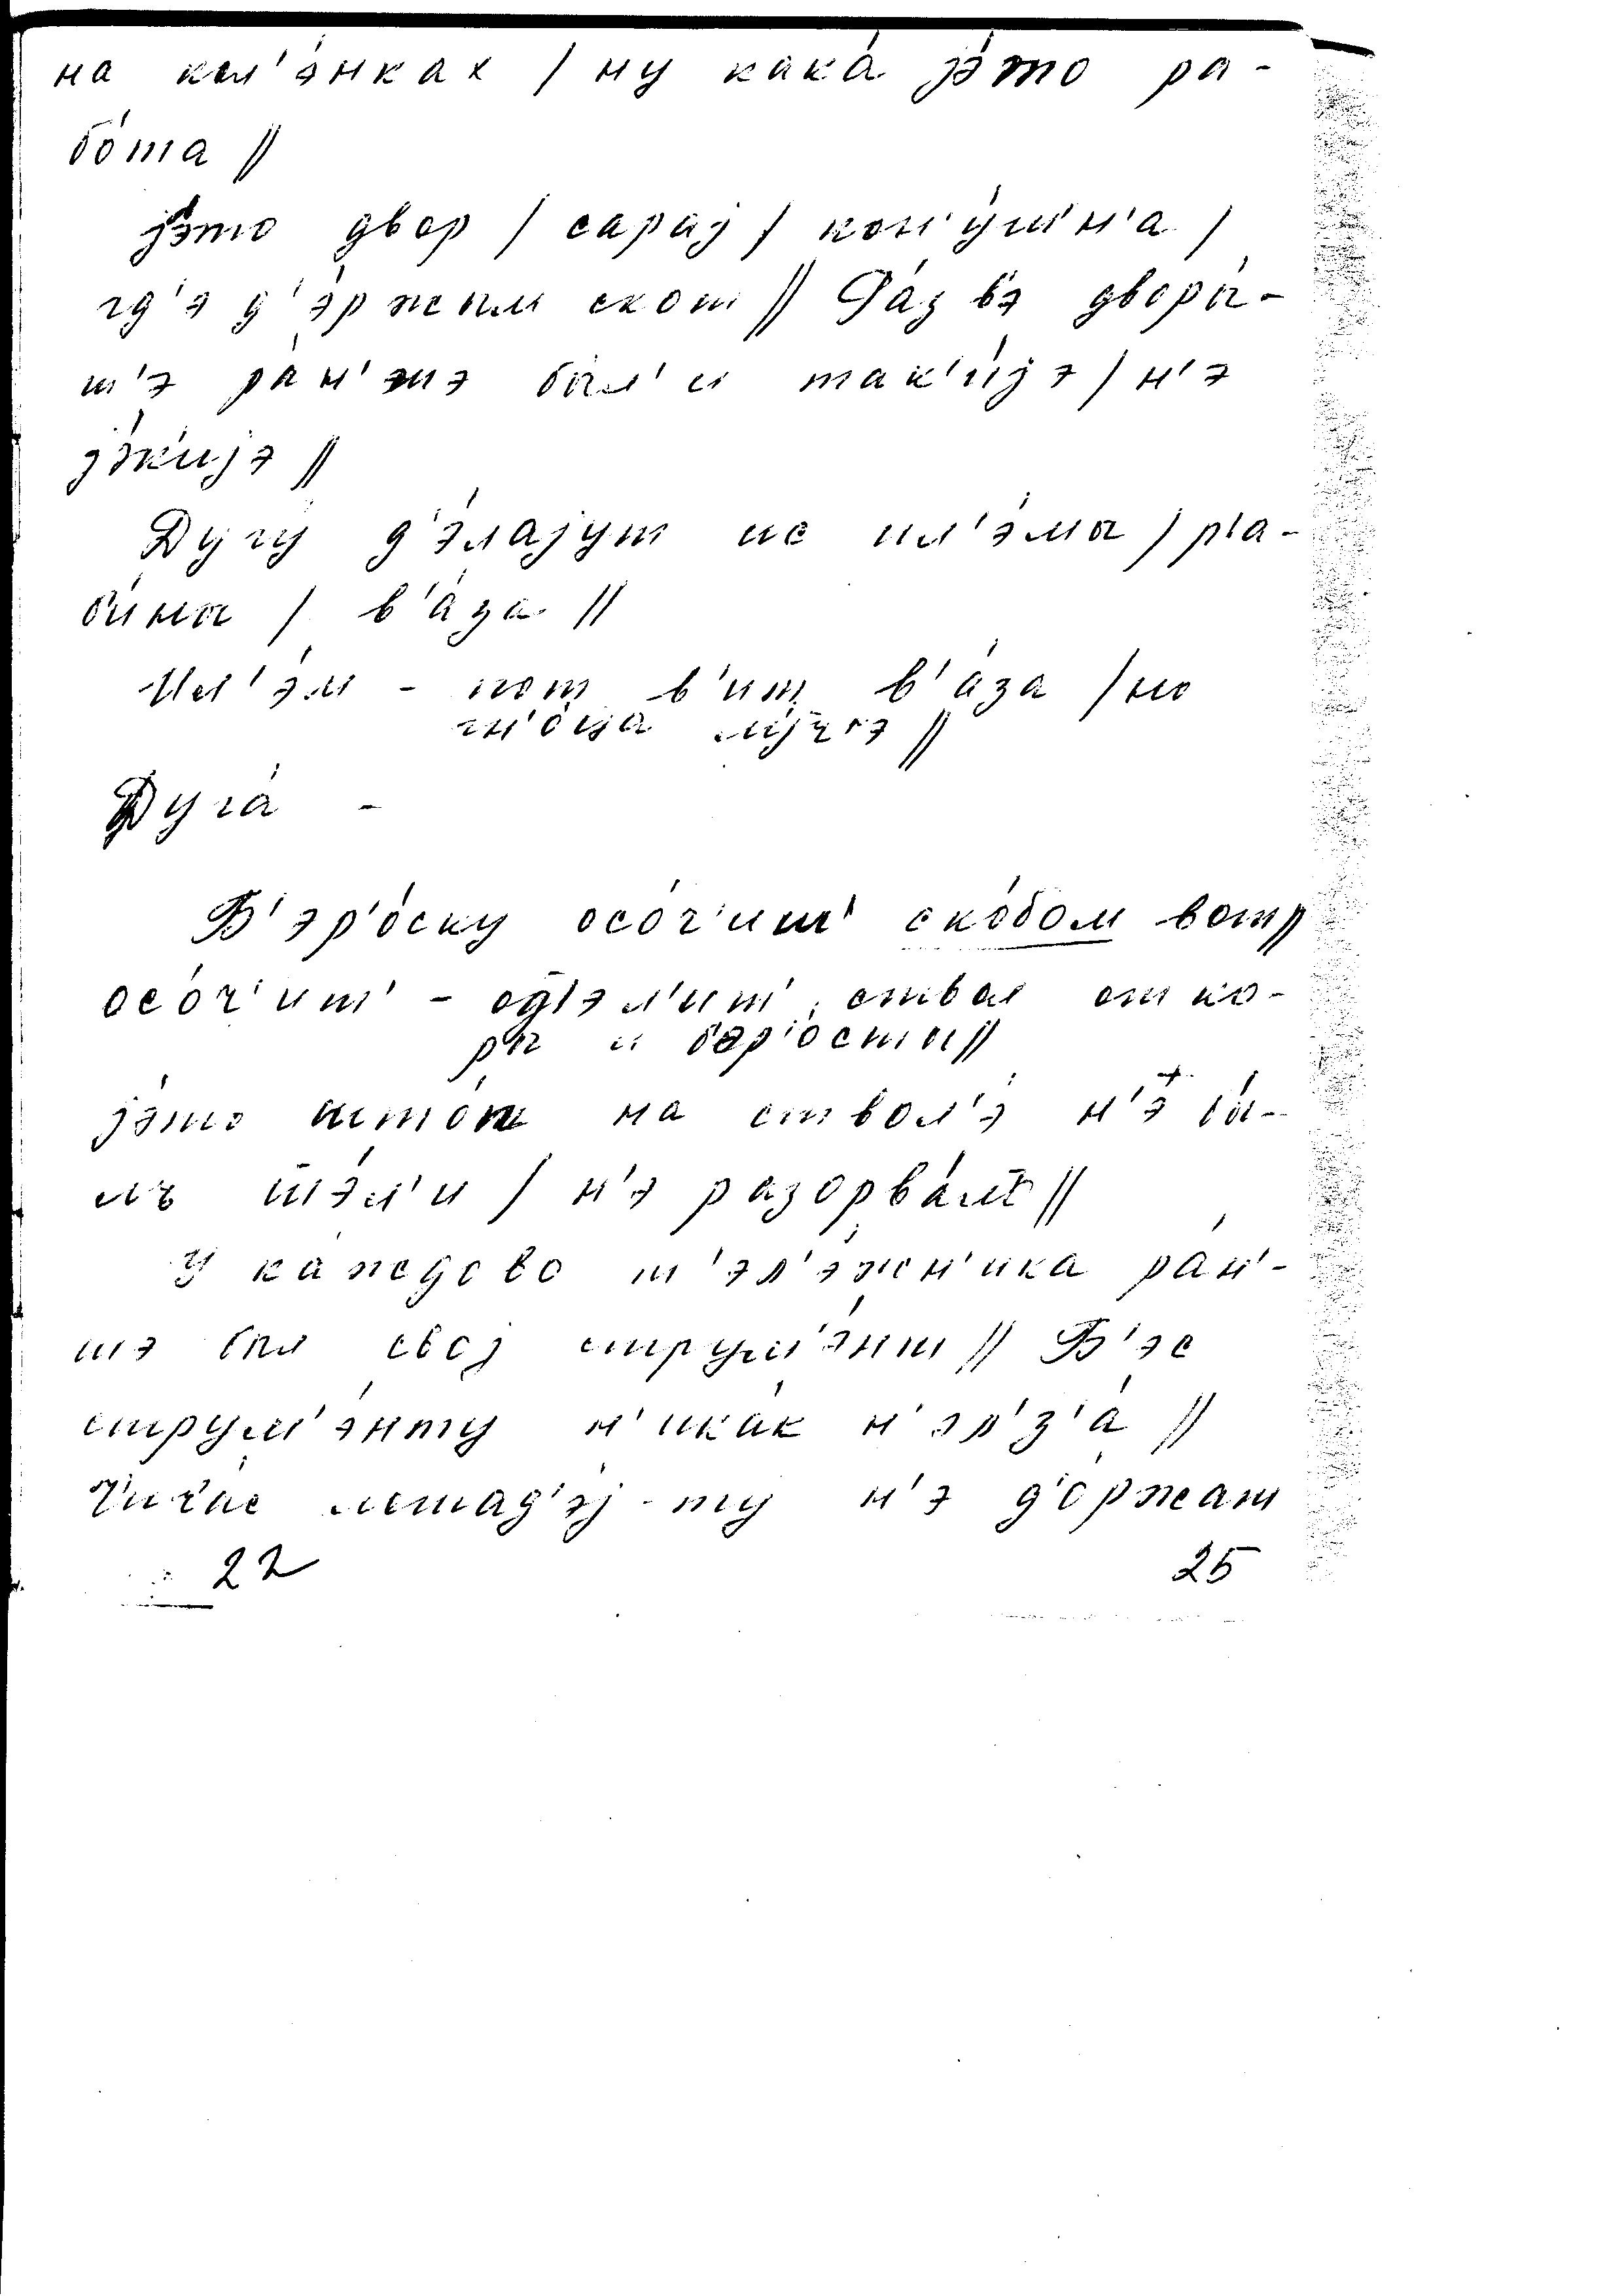 на кол'э́нках / ну кака́ јэ́то ра-
бо́та //
јэ́то двор / сарај / кон'у́ш'н'а /
гд'э д'э́ржым скот // Ра́з в'э дворы́-
т'э ра́н'шэ бы́л'и так'и́јэ / н'э
јэ́к'ијэ //
Дугу́ д'э́лајут ис ил'э́мы / р'а-
б'и́ны / в'а́за //
Ил'э́м - пот в'ит в'а́за / но
гн'о́ца лу́ч'э //
Дуга́ -
Б'эр'о́ску осо́ч'ит' ско́бом вот //
осо́ч'ит' - од'эл'ит' ствол от ко-
ры и б'эр'о́сты //
јэ́то што́п на ствол'э́ н'э бы́-
лъ шэ́л'и / н'э разорва́лъ //
У ка́ждово т'эл'э́жн'ика ра́н'-
шэ был свој струм'э́нт // Б'эс
струм'э́нту н'ика́к н'эл'з'а́ //
Ч'ич'а́с лошад'э́ј-ту н'э д'о́ржат
22 25